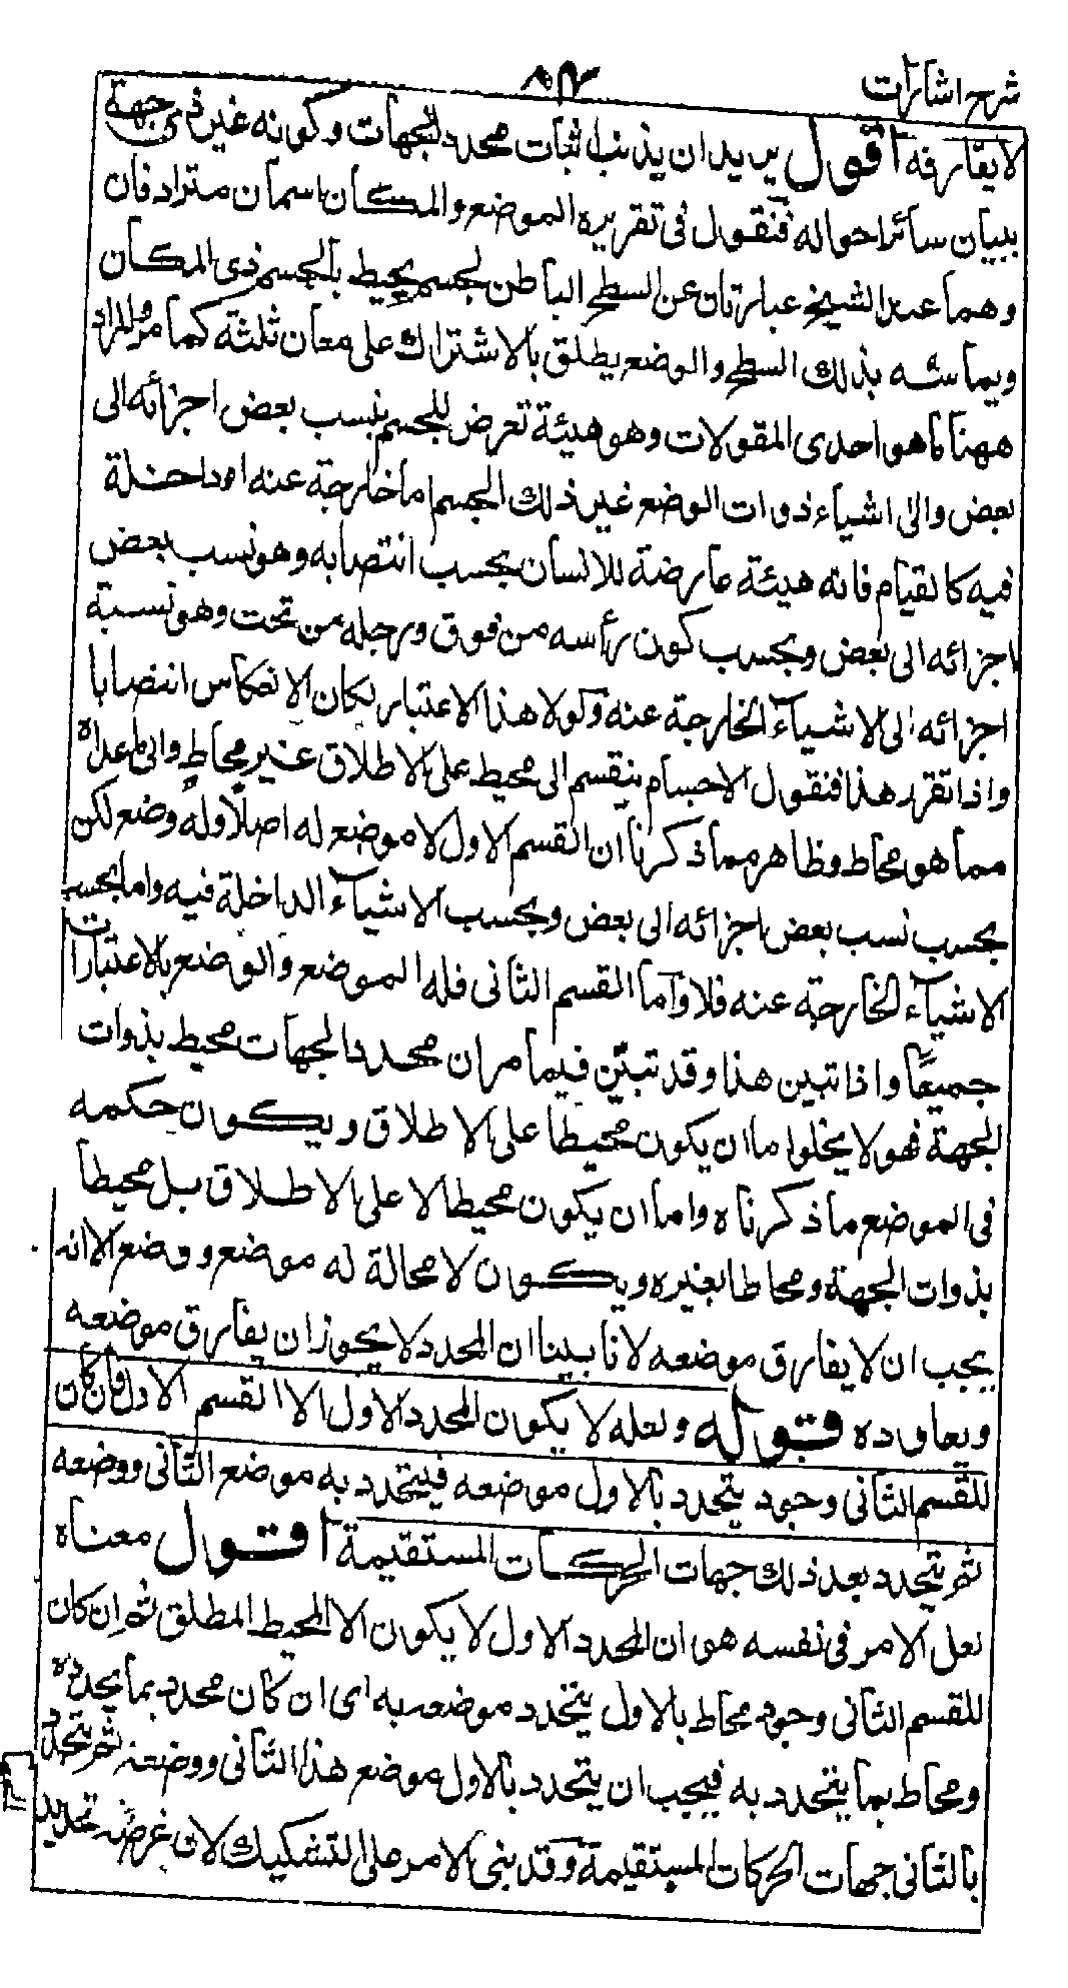 شرح اشارات
لا يفارقه اقول يريد ان يذنب اثبات محدد الجهات وكونه غير ذى جهة
ببيان سائر احواله فنقول فى تقريره الموضع والمكان اسمان مترادفان
وهما عند الشيخ عبارتان عن السطح الباطن لجسم يحيط بالجسم ذى المكان
ويماسه بذلك السطح والوضع يطلق بالاشتراك على معان ثلثة كما مر والمراد
ههنا ما هو احدى المقولات وهو هيئة تعرض للجسم بنسب بعض اجزائه الى
بعض والى اشياء ذوات الوضع غير ذلك الجسم اما خارجة عنه او داخلة
فيه كالقيام فانه هيئة عارضة للانسان بحسب انتصابه وهو نسب بعض
اجزائه الى بعض وبحسب كون رأسه من فوق ورجله من تحت وهو نسبة
اجزائه الى الاشياء الخارجة عنه ولولا هذا الاعتبار لكان الانعكاس انتصابا
واذا تقرر هذا فنقول الاجسام ينقسم الى محيط على الاطلاق غير محاط والى ما عداه
مما هو محاط وظاهر مما ذكرنا ان القسم الاول لا موضع له اصلا وله وضع لكن
بحسب نسب بعض اجزائه الى بعض وبحسب الاشياء الداخلة فيه واما بحسب
الاشياء الخارجة عنه فلا واما القسم الثانى فله الموضع والوضع بالاعتبارات
جميعًا واذا تبين هذا وقد تبيّن فيما مر ان محدد الجهات محيط بذوات
الجهة فهو لا يخلوا اما ان يكون محيطا على الاطلاق ويكون حكمه
فى الموضع ما ذكرناه واما ان يكون محيطا لا على الاطلاق بل محيطا
بذوات الجهة ومحاطا بغيره ويكون لا محالة له موضع ووضع الا انه
يجب ان لا يفارق موضعه لانا بينا ان المحدد لا يجوز ان يفارق موضعه
ويعاوده قوله ولعله لا يكون المحدد الاول الا القسم الاول فان كان
للقسم الثانى وجود يتحدد بالاول موضعه فيتحدد به موضع الثانى ووضعه
ثم يتحدد بعد ذلك جهات الحركات المستقيمة اقول معناه
لعل الامر فى نفسه هو ان المحدد الاول لا يكون الا المحيط المطلق ثم ان كان
للقسم الثانى وجود محاط بالاول يتحدد موضعه به اى ان كان محدد بما يحدده
ومحاط بما يتحدد به فيجب ان يتحدد بالاول موضع هذا الثانى ووضعه ثم يتحدد
بالثانى جهات الحركات المستقيمة وقد بنى الامر على التشكيك لان غرضه تحديد